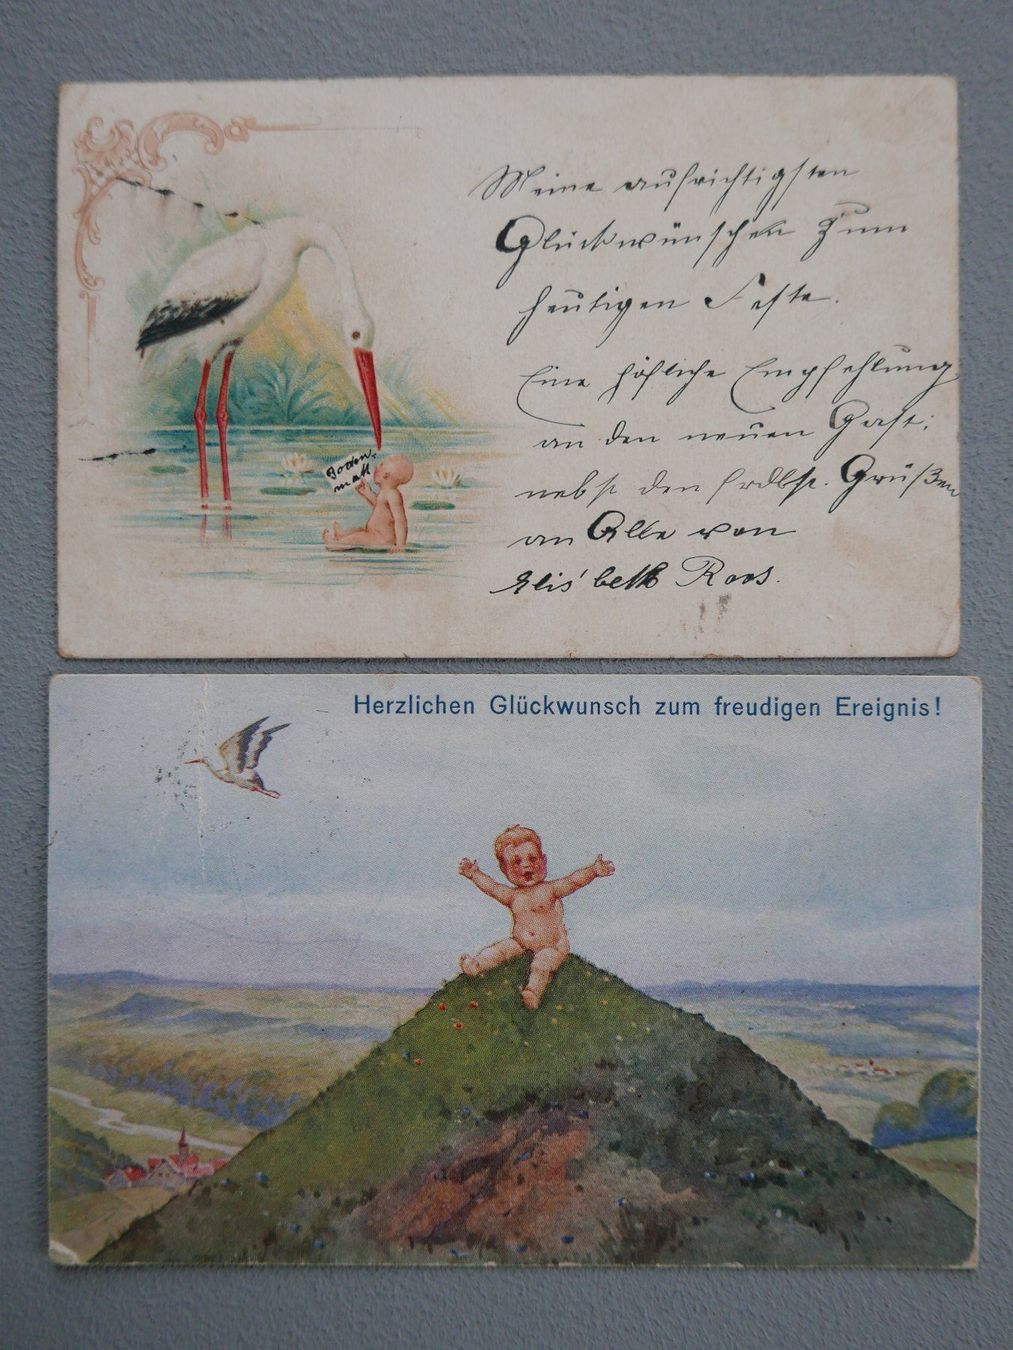 Meine aufrichtigsten
Glückwünschen zum
heutigen Feste.
Eine höfliche Empfehlung
an den neuen Gast;
nebst den frdlst. Grüßen
an Alle von
Elis'beth Roos.
Boden-
matt
Herzlichen Glückwunsch zum freudigen Ereignis!